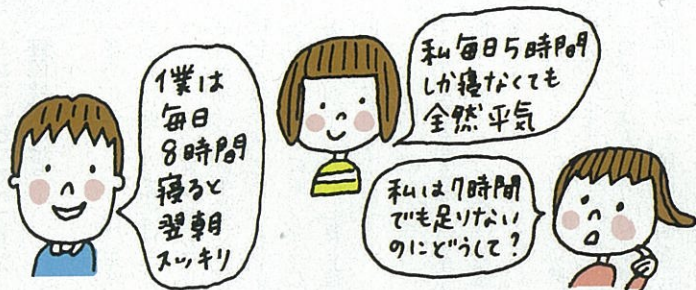 僕は
毎日
8時間
寝ると
翌朝
スッキリ
私毎日5時間
しか寝なくても
全然平気
私は7時間
でも足りない
のにどうして?